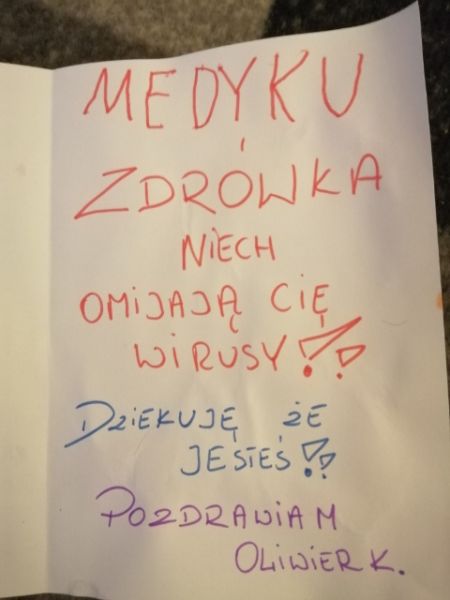 MEDYKU
ZDRÓWKA
NIECH
OMIJAJĄ CIĘ
WIRUSY!!
DZIEKUJĘ ŻE
JESTEŚ!!
POZDRAWIAM
OLIWIER K.